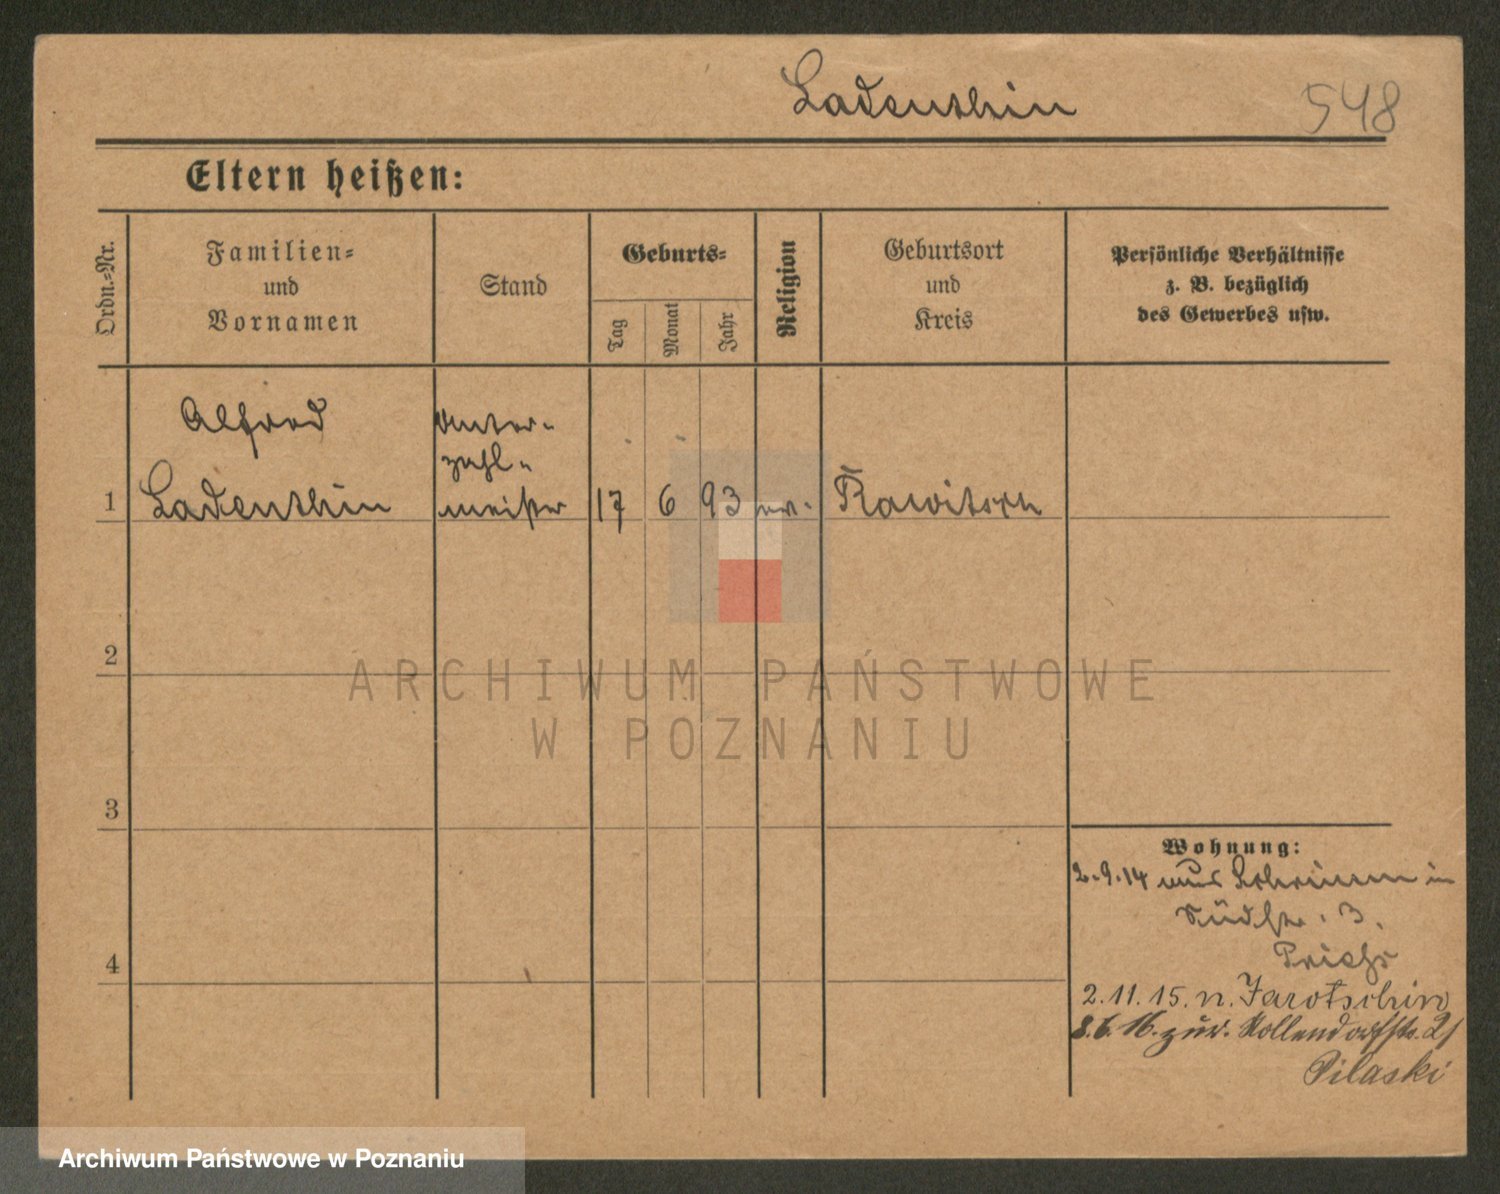 Ladenthin
548
Eltern heißen:
Ordn.-Nr.
Familien-
und
Vornamen
Stand
Geburts-
Tag
Monat
Jahr
Religion
Geburtsort
und
Kreis
Persönliche Verhältnisse
z. B. bezüglich
des Gewerbes usw.
Alfred
Unter-
zahl-
1 Ladenthin meister 17 6 93 ev. Rawitsch
2
ARCHIWUM PAŃSTWOWE
W POZNANIU
3
Wohnung:
2.9.14 aus Schrimm in
Südstr. 3.
4
2.11.15. n. Jarotschin
8.6.16. zur. Kollendorfstr. 21
Pilaski
Archiwum Państwowe w Poznaniu